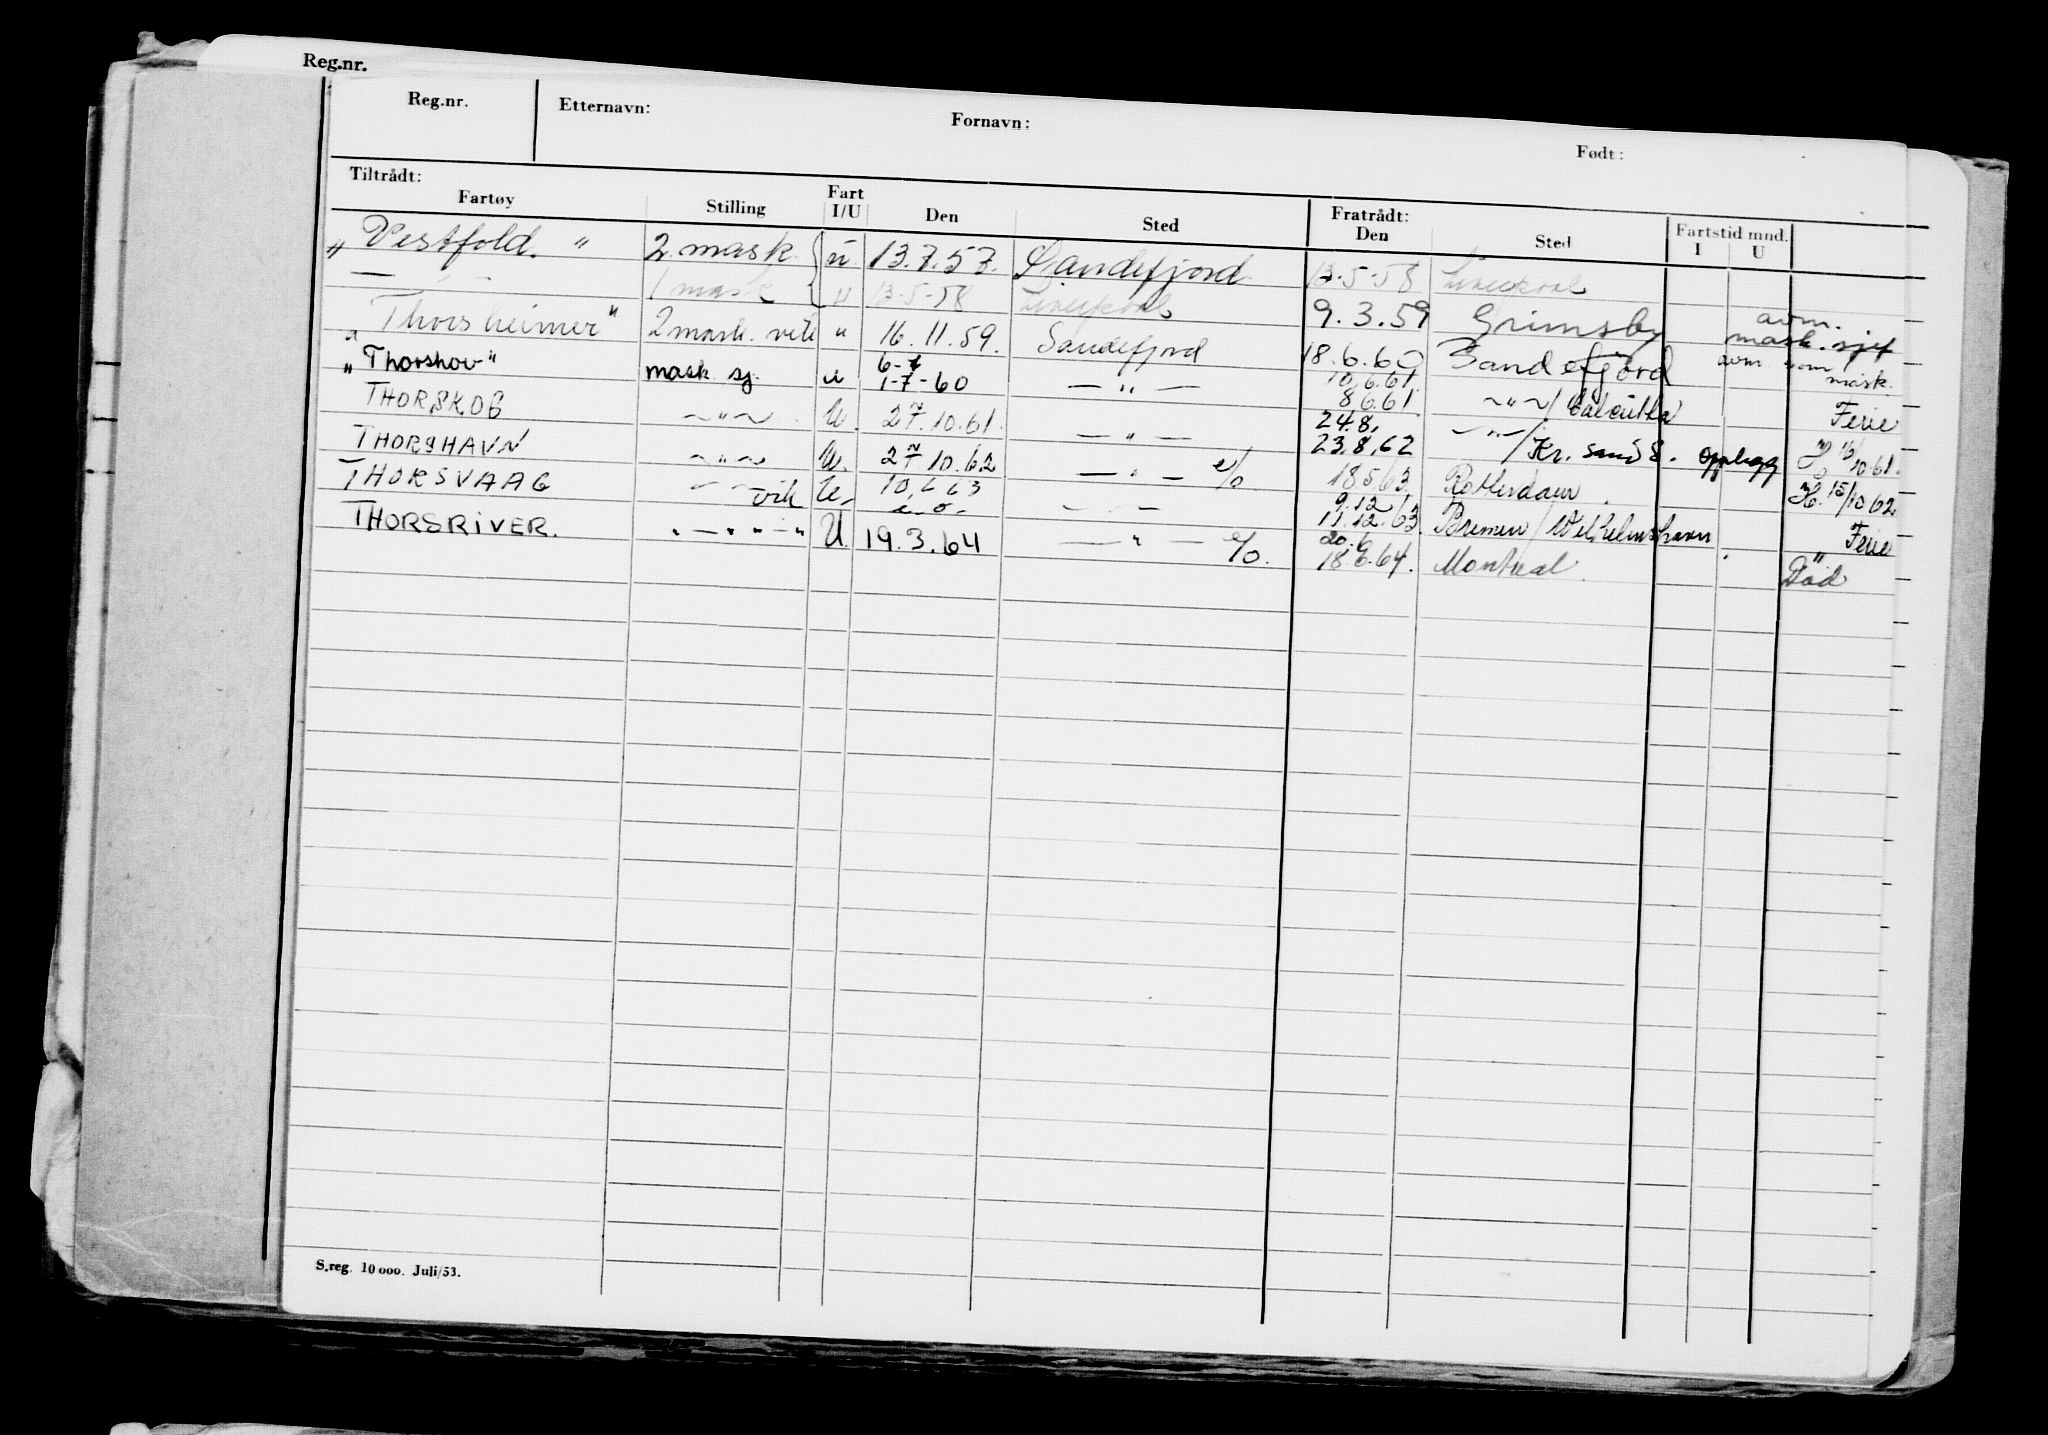 Reg.nr.
Reg.nr. Etternavn: Fornavn: Født:
Tiltrådt: Fratrådt:
Fartøy Stilling Fart I/U Den Sted Den Sted Fartstid mnd. I U
„ Vestfold. " 2. mask. u. 13.7.57. Sandefjord 13-5-58 Liverpool
— " — 1 mask u 13-5-58 Liverpool 9.3.59 Grimsby avm. mask. sjef
„ Thorsheimer " 2 mask. vik " 16.11.59. Sandefjord 18.6.60 Sandefjord avm. som mask.
„ Thorshov " mask sj. u 6-7 1-7-60 — " — 10.6.61 8.6.61 ~ " ~ / Calcutta Ferie
THORSKOG ~ " ~ U. 27.10.61. — " — 24.8. 23.8.62 — " — / Kr. sand S. Opplagg 10.61.
THORSHAVN ~ " ~ U. 27 10.62 — " — e/o 18.5.63. Rotterdam. 15/10 62
THORSVAAG — — vik U. 10.6.63 e.o. — — 9.12 11.12.63. Bremen / Wilhelmshavn Ferie
THORSRIVER. " — " — " U. 19.3.64 — " — e/o. 20.6 18.6.64. Montreal. " Död
S.reg. 10 000. Juli/53.